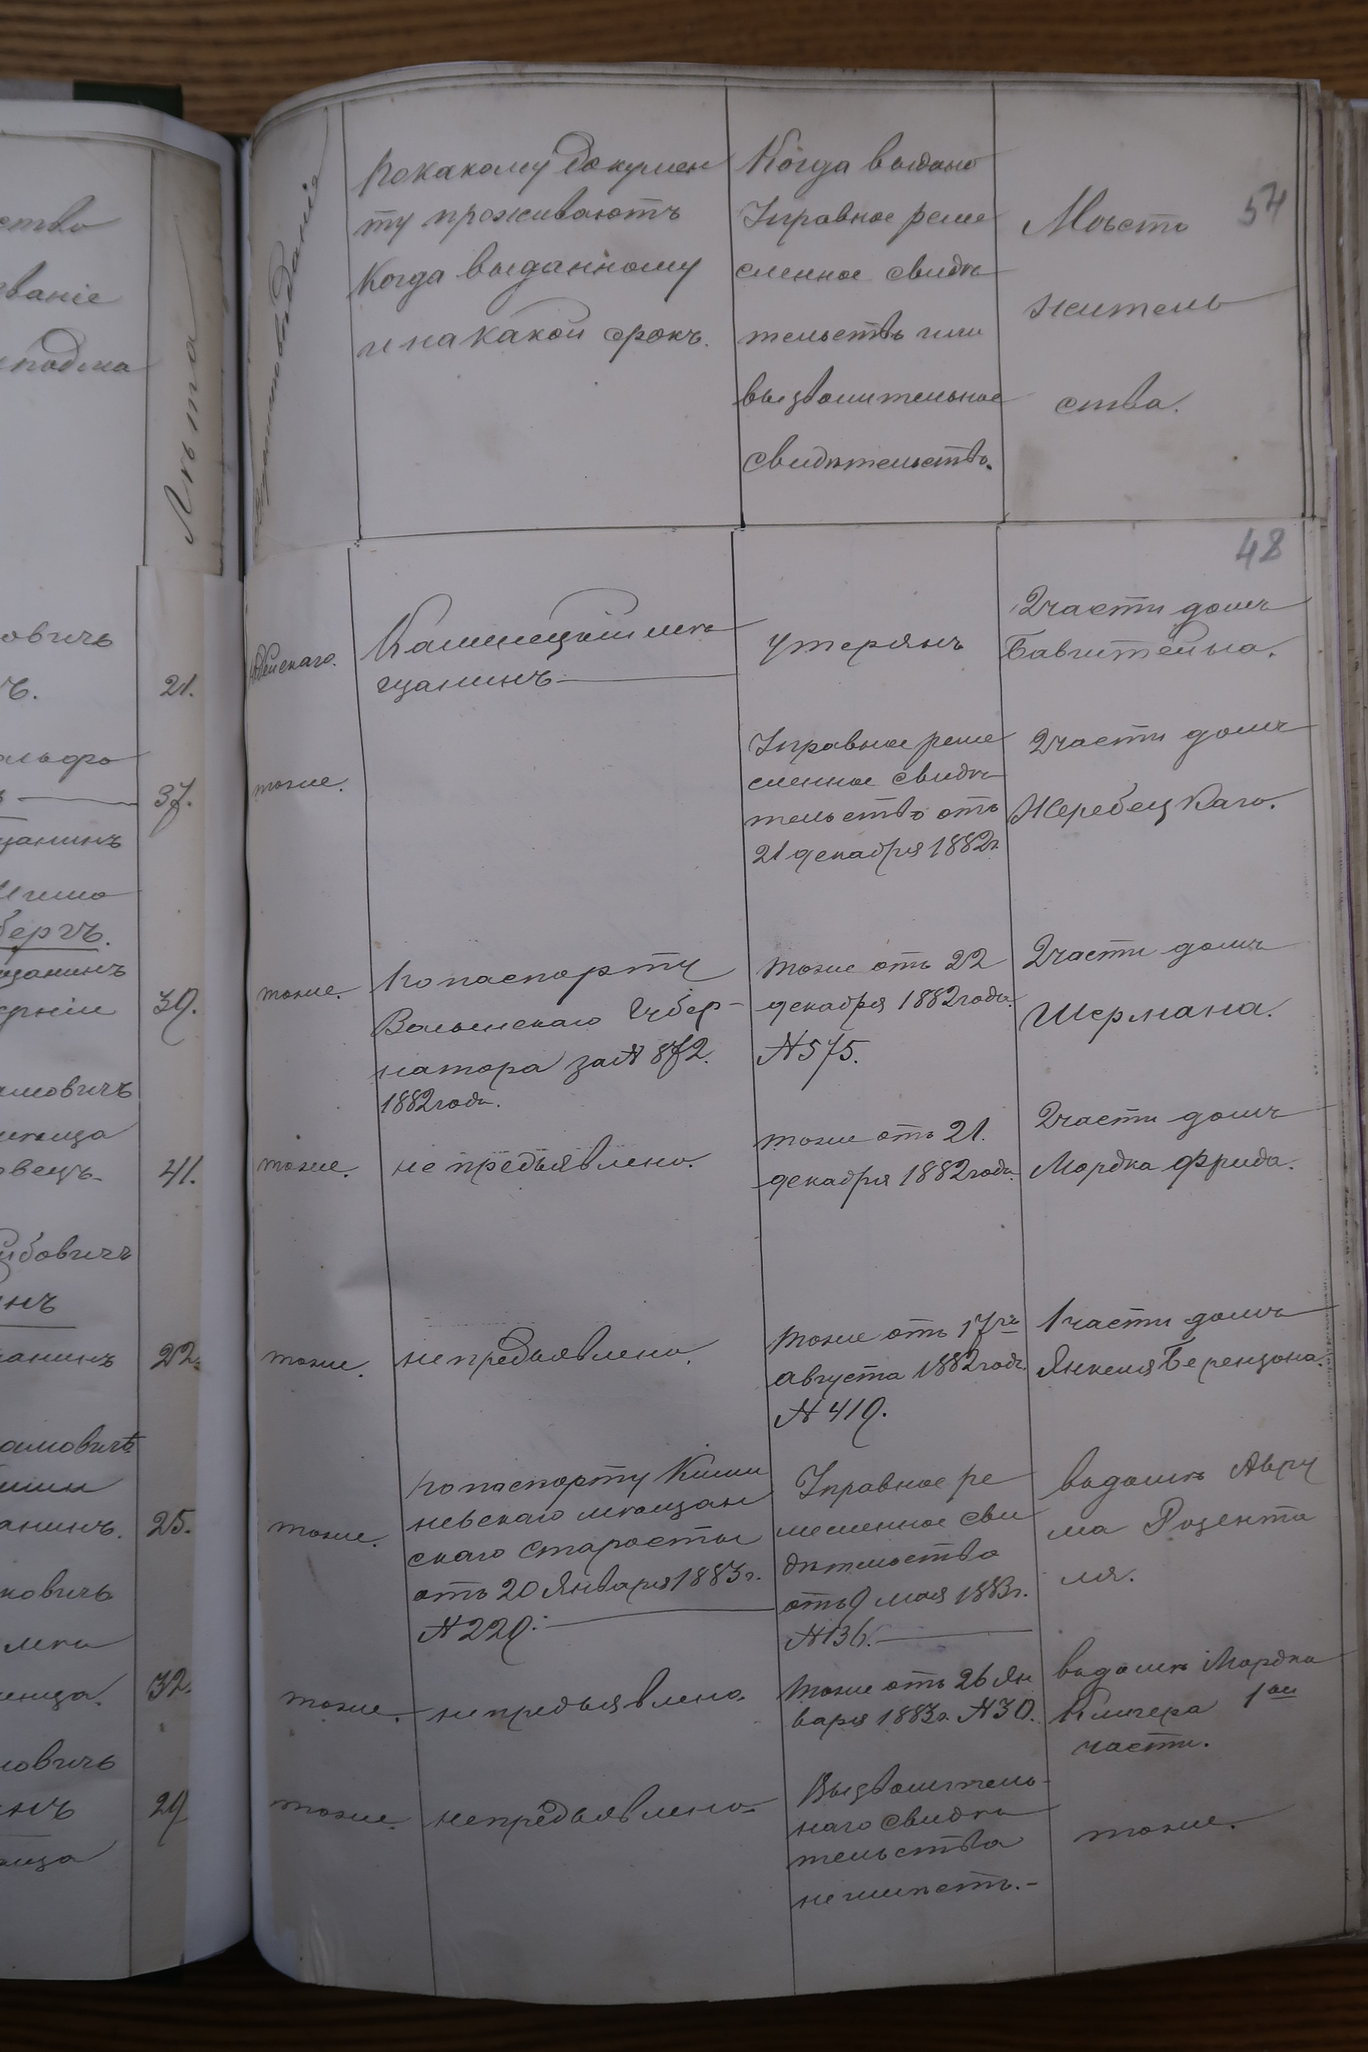 ство
званіе
Лѣта
овичъ
ъ.
21.
37.
щанинъ
бергъ.
щанинъ
39.
овецъ.
41.
нъ
щанинъ
22.
25.
32.
29
Вѣроисповѣданіе
По какому докумен
ту проживаютъ
Когда выданному
и на какой срокъ.
Когда выдано
Управное реме
сленное свидѣ
тельство или
вызволительное
свидѣтельство.
Мѣсто
житель
ства.
54
48
Каменецкій мѣ
щанинъ
утерянъ
2 части домъ
тоже.
Управное реме
сленное свидѣ
тельство отъ
21 декабря 1882 г.
2 части домъ
Жеребецкаго.
тоже.
По паспорту
Волынскаго Губер-
натора за № 872.
1882 года.
тоже отъ 22
декабря 1882 года.
№ 575.
2 части домъ
Шермана.
тоже.
не предъявлено.
тоже отъ 21.
декабря 1882 года.
2 части домъ
Мордка Фрида.
тоже.
не предъявлено.
тоже отъ 17го
августа 1882 года.
№ 419.
1 части домъ
Янкеля Берензона.
тоже.
по паспорту Киши
невскаго мѣщан
скаго старосты
отъ 20 Января 1883 г.
№ 229.
Управное ре
месленное сви
дѣтельство
отъ 9 мая 1883 г.
№ 136.
въ домѣ Авру
ма Розента
ля.
тоже.
не предъявлено.
тоже отъ 26 Ян
варя 1883 г. № 30.
въ домѣ Мордка
1ой
части.
тоже.
не предъявлено.
Вызволитель-
наго свидѣ
тельства
не имѣетъ.-
тоже.